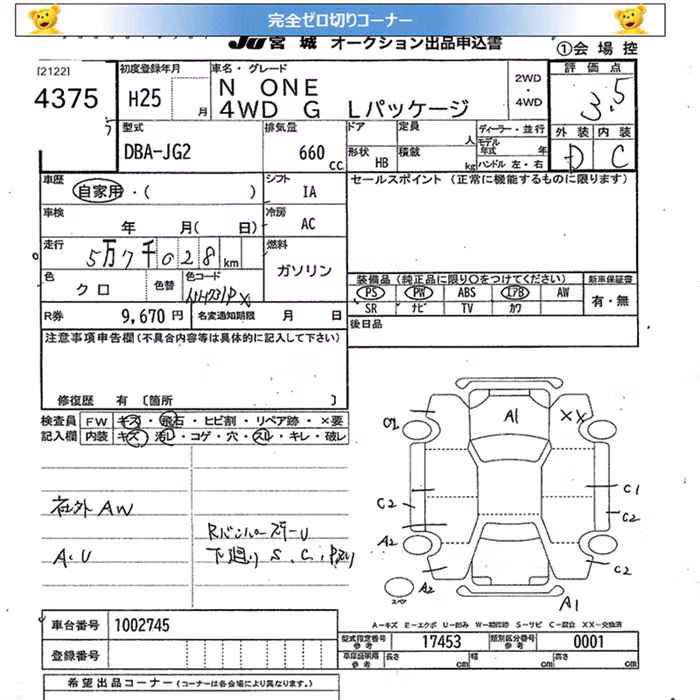 完全ゼロ切りコーナー
JU 宮城 オークション出品申込書
①会場控
[2122]
4375
初度登録年月
H25 月
車名・グレード
N ONE
4WD G Lパッケージ
2WD
・
4WD
評価点
3.5
外装 内装
D C
型式
DBA-JG2
排気量
660 cc
ドア 定員 人
形状 HB 積載 kg
ディーラー・並行
モデル年式 年
ハンドル 左・右
車歴
自家用・( )
シフト
IA
セールスポイント (正常に機能するものに限ります)
車検
年 月( 日)
冷房
AC
走行
5万7千028 km
燃料
ガソリン
色
クロ
色替
色コード
装備品 (純正品に限り○をつけてください)
新車保証書
PS PW ABS エアB AW
有・無
SR ナビ TV カワ
R券 9,670 円
名変通知期限 月 日
後日品
注意事項申告欄 (不具合内容等は具体的に記入して下さい)
修復歴 有 〔箇所 〕
検査員
記入欄
FW キズ・飛石・ヒビ割・リペア跡・×要
内装 キズ・汚レ・コゲ・穴・スレ・キレ・破レ
社外AW
A、U
RバンパースリーU
下廻り S、C、
A1
XX
C2
C1
C2
A2
C2
A2
A1
スペア
A-キズ E-エクボ U-凹み W-補修跡 S-サビ C-腐食 XX-交換済
車台番号 1002745
登録番号
型式指定番号 参考 17453
類別区分番号 参考 0001
長さ cm 幅 cm 高さ cm
希望出品コーナー (コーナーは各会場により異なります。)